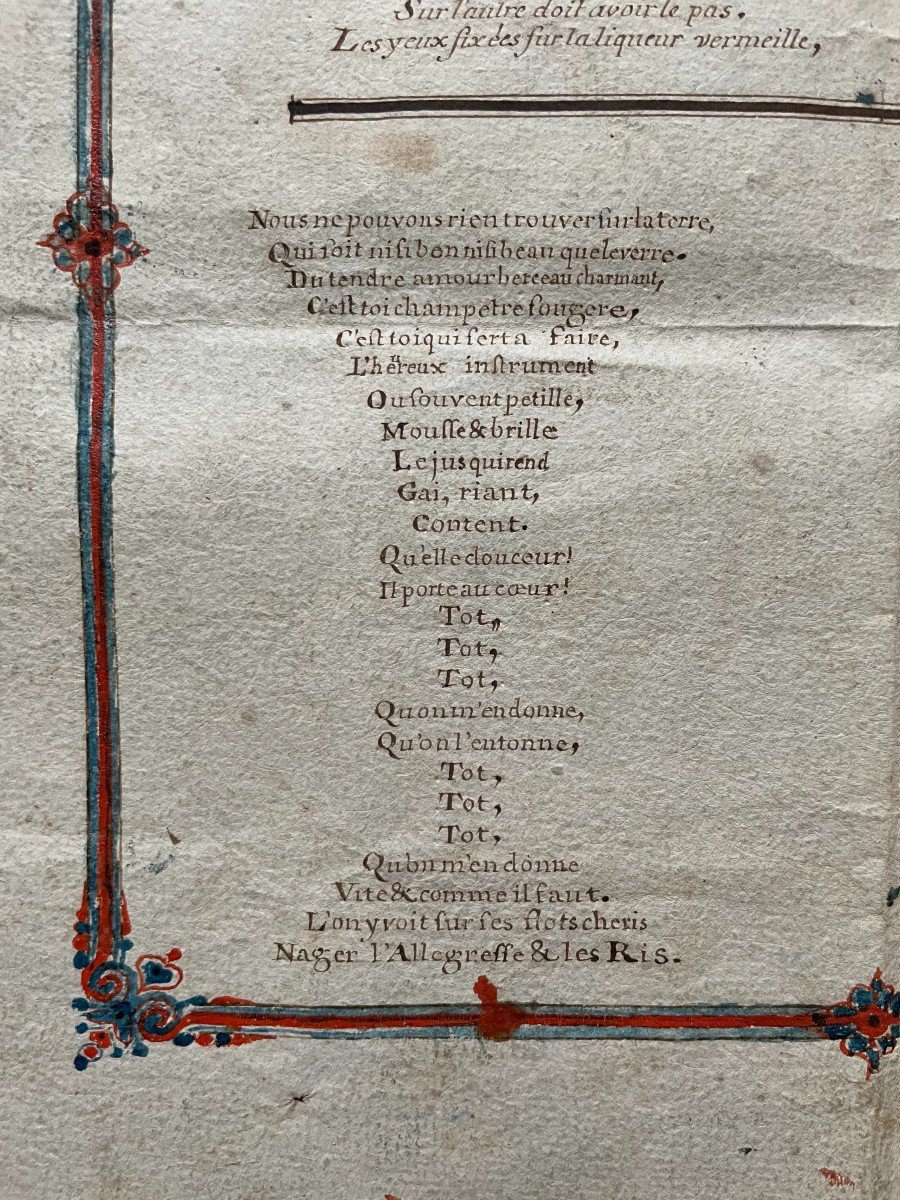 Sur l'autre doit avoir le pas.
Les yeux fixées sur la liqueur vermeille,
Nous ne pouvons rien trouver sur la terre,
Qui soit ni si bon ni si beau que le verre.
Du tendre amour berceau charmant,
C'est toi champetre fougere,
C'est toi qui sert a faire,
L'hereux instrument
Ou souvent petille,
Mousse & brille
Le jus qui rend
Gai, riant,
Content.
Qu'elle douceur!
Il porte au cœur!
Tot,,
Tot,
Tot,
Quon m'en donne,
Qu'on l'entonne,
Tot,
Tot,
Tot,
Qu'on m'en donne
Vite & comme il faut.
L'on y voit sur ses flots cheris
Nager l'Allegresse & les Ris.